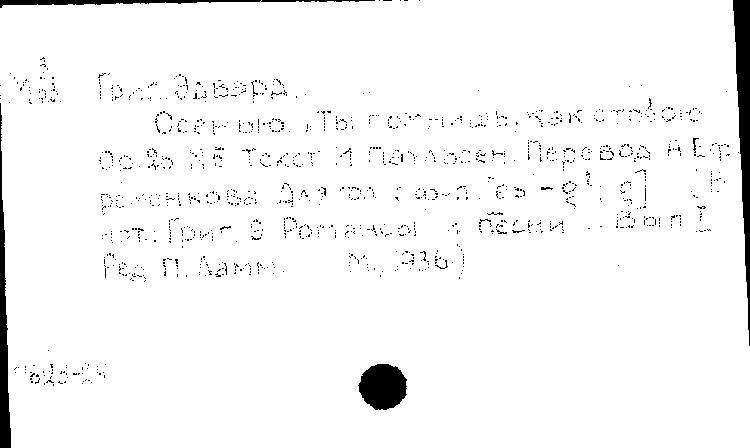 Григ. Эдвард.
Осенью. „Ты помнишь, как с тобою
Op. 26 № 5 Текст И Паульсен. Перевод А Еф-
ременкова Для гол с ф-п.
нот.: Григ. Э Романсы и песни.. Вып I
Ред П. Ламм. М., 1936)